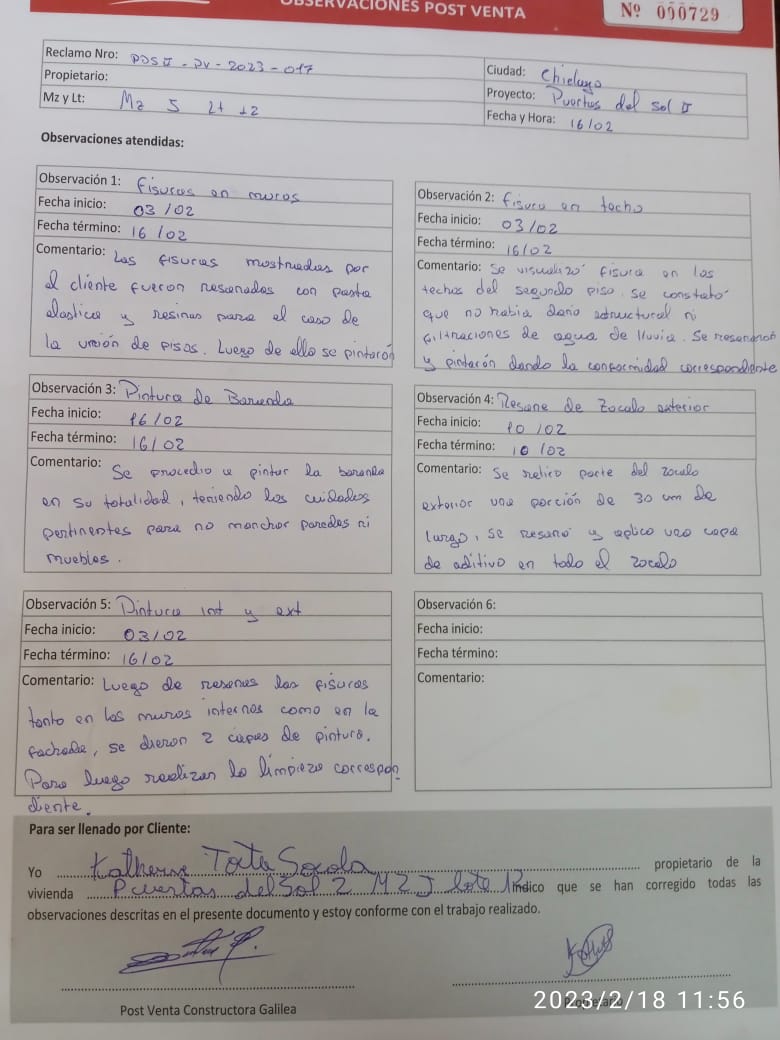 OBSERVACIONES POST VENTA
Nº 000729
Reclamo Nro: PDSII - PV - 2023 - 017
Propietario:
Mz y Lt: Mz 5 Lt 12
Ciudad: Chiclayo
Proyecto: Puertas del Sol II
Fecha y Hora: 16/02
Observaciones atendidas:
Observación 1: Fisuras en muros
Fecha inicio: 03/02
Fecha término: 16/02
Comentario: Las fisuras mostradas por
el cliente fueron resanados con pasta
elastica y resinas para el caso de
la unión de pisos. Luego de ello se pintarón
Observación 2: Fisura en techo
Fecha inicio: 03/02
Fecha término: 16/02
Comentario: Se visualizó fisura en los
techos del segundo piso. se constató
que no habia daño estructural ni
filtraciones de agua de lluvia. Se resanaron
y pintarón dando la conformidad correspondiente
Observación 3: Pintura de Baranda
Fecha inicio: 16/02
Fecha término: 16/02
Comentario: Se procedio a pintar la baranda
en su totalidad, teniendo los cuidados
pertinentes para no manchar paredes ni
muebles.
Observación 4: Resane de Zocalo exterior
Fecha inicio: 10/02
Fecha término: 10/02
Comentario: Se retiro parte del zocalo
exterior una porción de 30 cm de
largo, se resanó y aplico una capa
de aditivo en todo el zocalo
Observación 5: Pintura int y ext
Fecha inicio: 03/02
Fecha término: 16/02
Comentario: Luego de resanes las fisuras
tanto en los muros internos como en la
fachada, se dieron 2 capas de pintura.
Para luego realizar la limpieza correspon
diente.
Observación 6:
Fecha inicio:
Fecha término:
Comentario:
Para ser llenado por Cliente:
Yo Katherine Tota propietario de la
vivienda Puertas del Sol 2 MZ J lote 12 indico que se han corregido todas las
observaciones descritas en el presente documento y estoy conforme con el trabajo realizado.
Post Venta Constructora Galilea
Propietario
2023/2/18 11:56